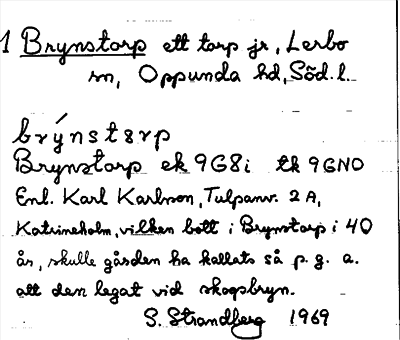 1 Brynstorp ett torp jr, Lerbo
sn, Oppunda hd, Söd. l.
brýnstɛrp
Brynstorp ek 9G8i tk 9GNO
Enl. Karl Karlsson, Tulpanv. 2A,
Katrineholm, vilken bott i Brynstorp i 40
år, skulle gården ha kallats så p. g. a.
att den legat vid skogsbryn.
S. Strandberg 1969